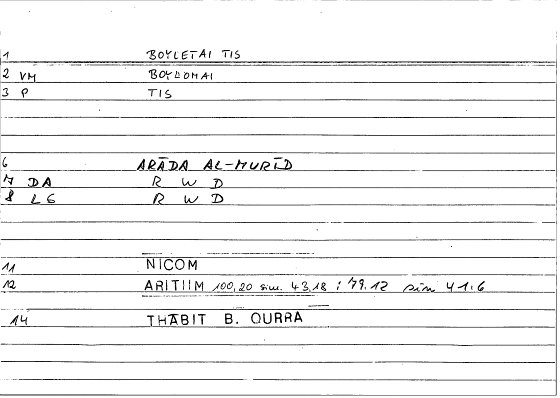 1 BOYLETAI TIS
2 VM BOYLOMAI
3 P TIS
6 ARĀDA AL-MURĪD
7 DA R W D
8 LG R W D
11 NICOM
12 ARITHM 100,20 sim. 43,18 : 79.12 sim 41.6
14 THĀBIT B. QURRA